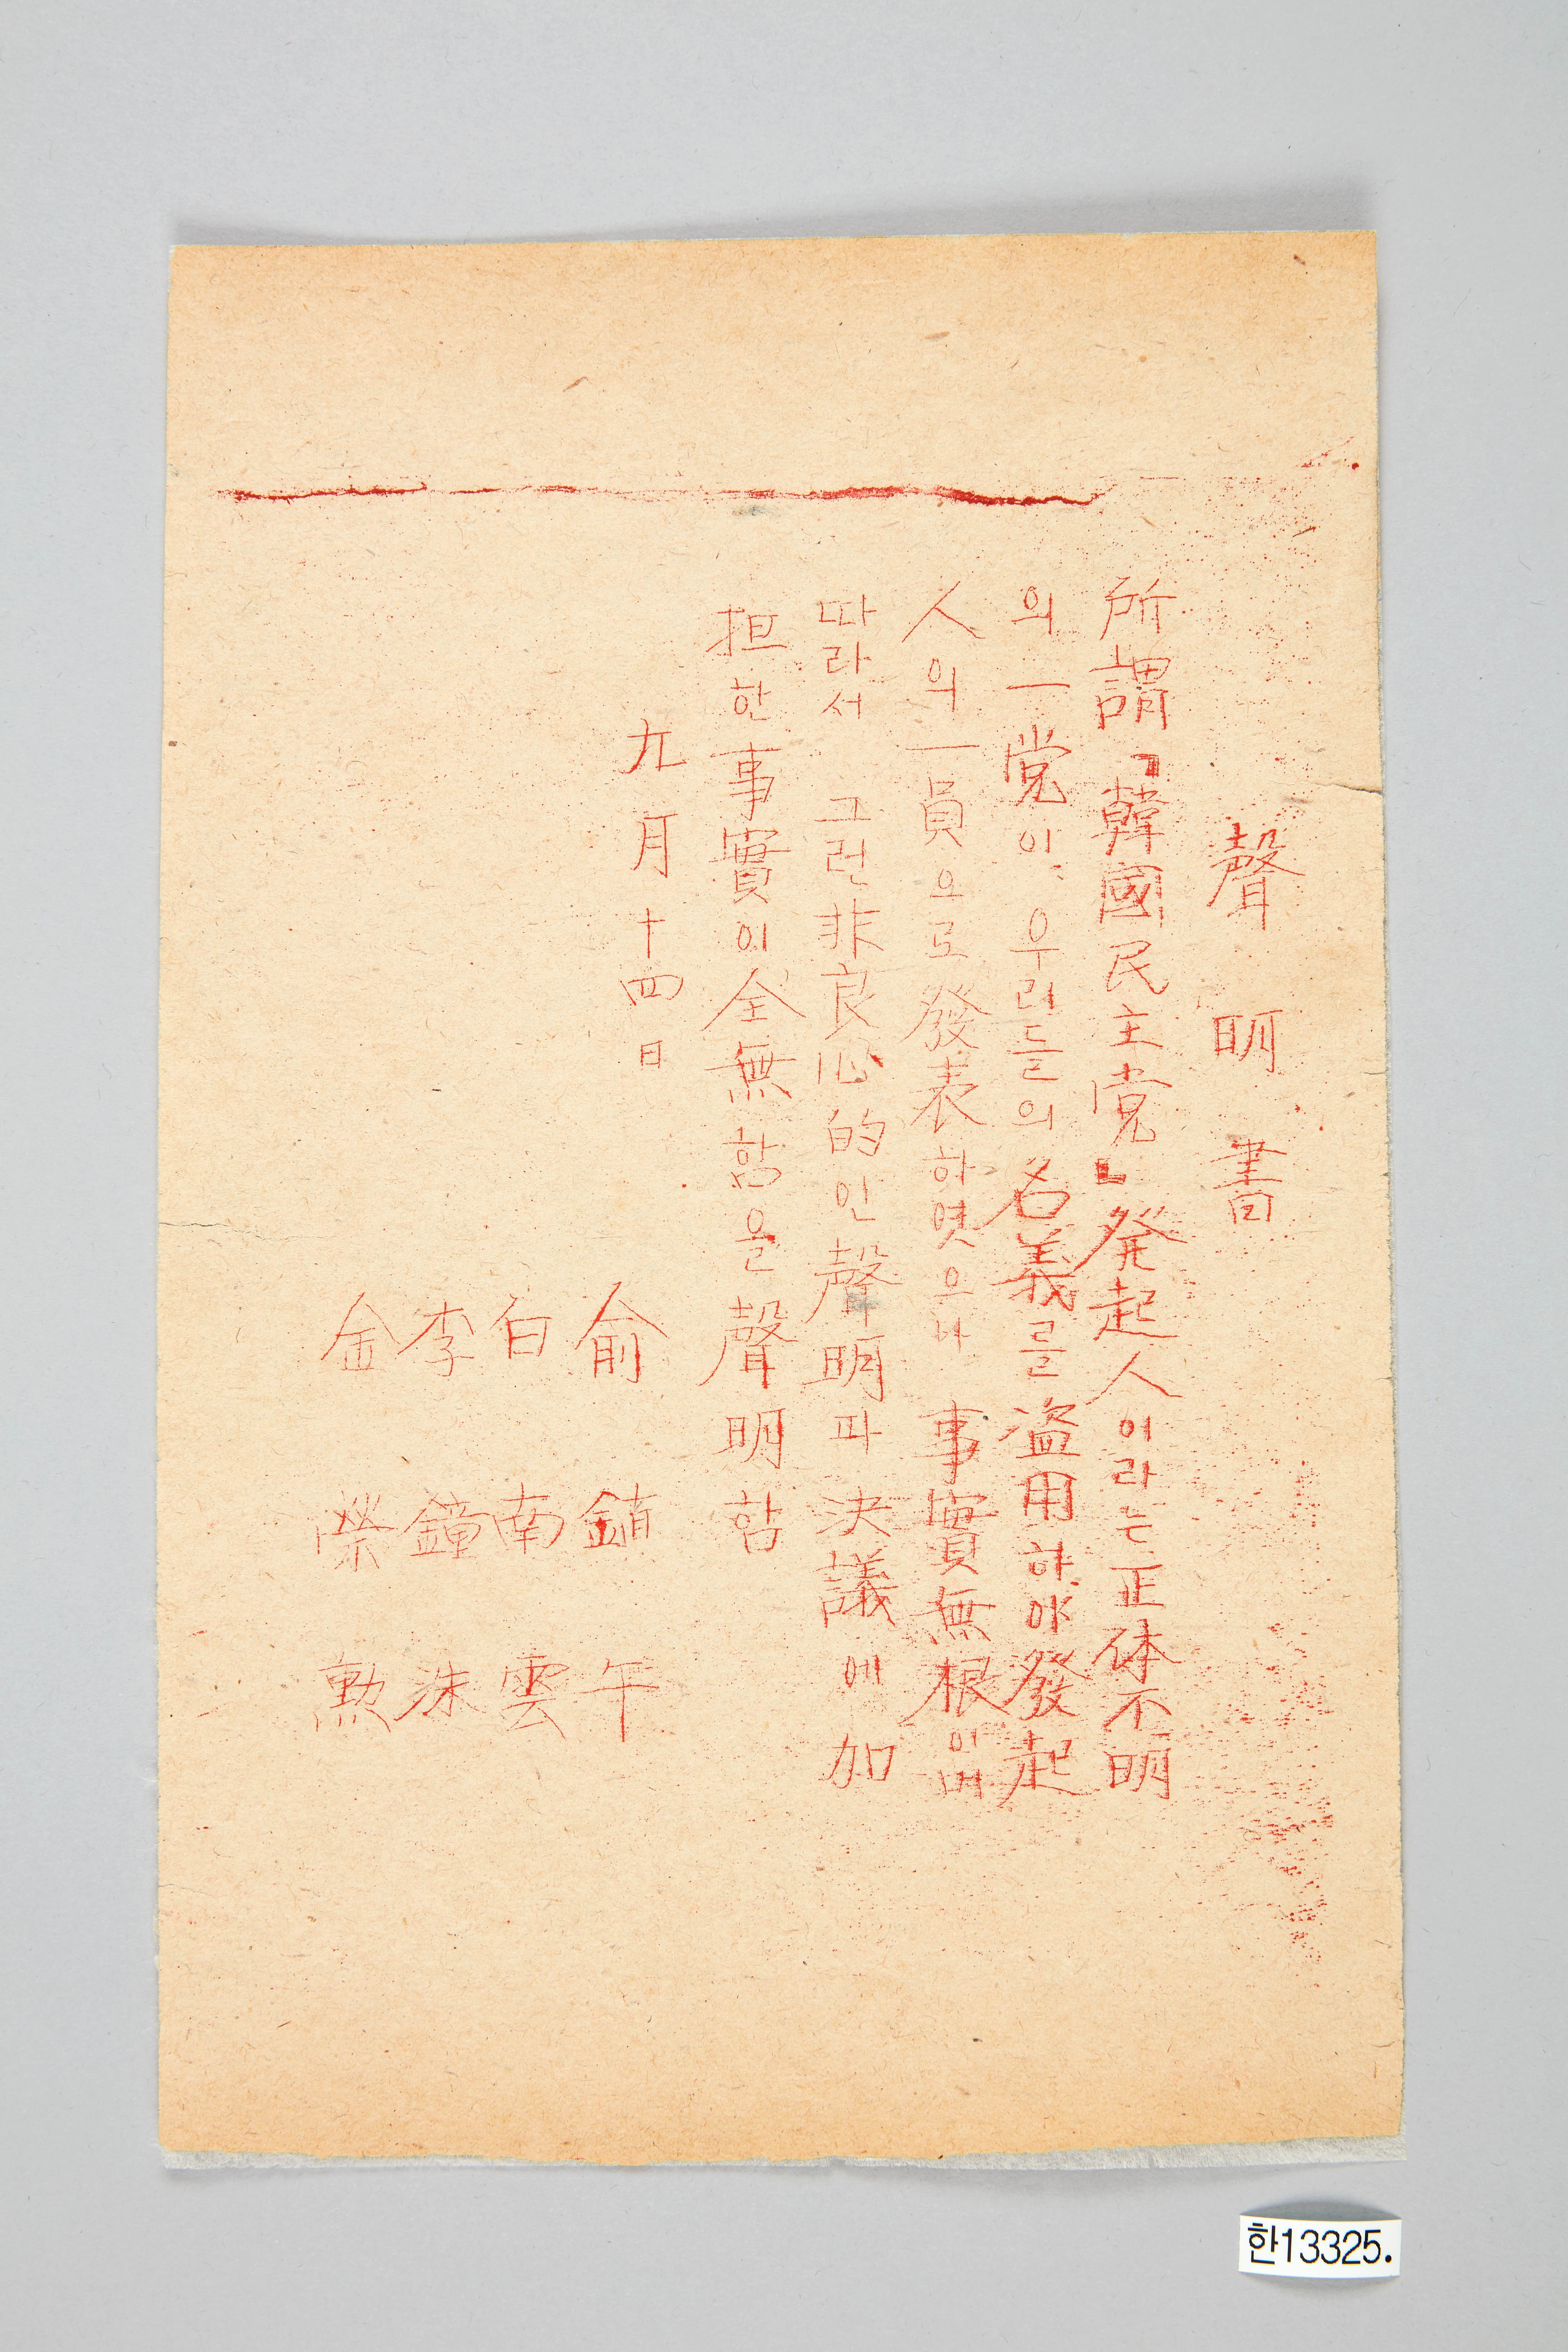 聲明書
所謂「韓國民主党」発起人이라는正体不明
의一党이, 우리들의名義를盗用하야發起
人의一員으로發表하엿으나 事實無根이며
따라서 그런非良心的인聲明과決議에加
担한事實이全無함을聲明함
九月十四日
俞鎭午
白南雲
李鐘洙
金榮勲
한13325.